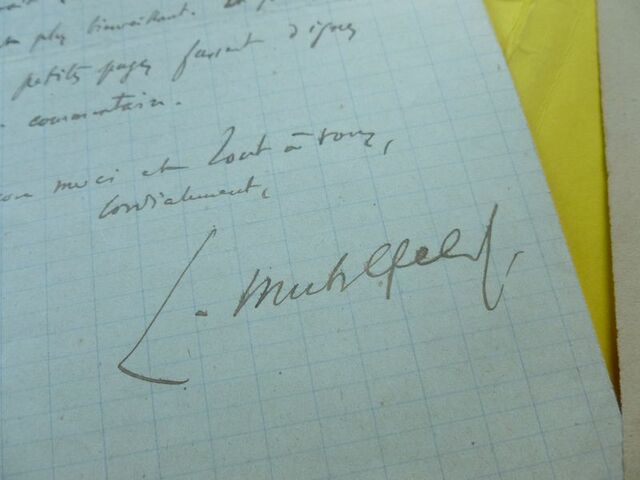 plus bienveillant.
petites pages fussent dignes
commentaire.
merci et tout à vous,
cordialement,
L. Muhlfeld,